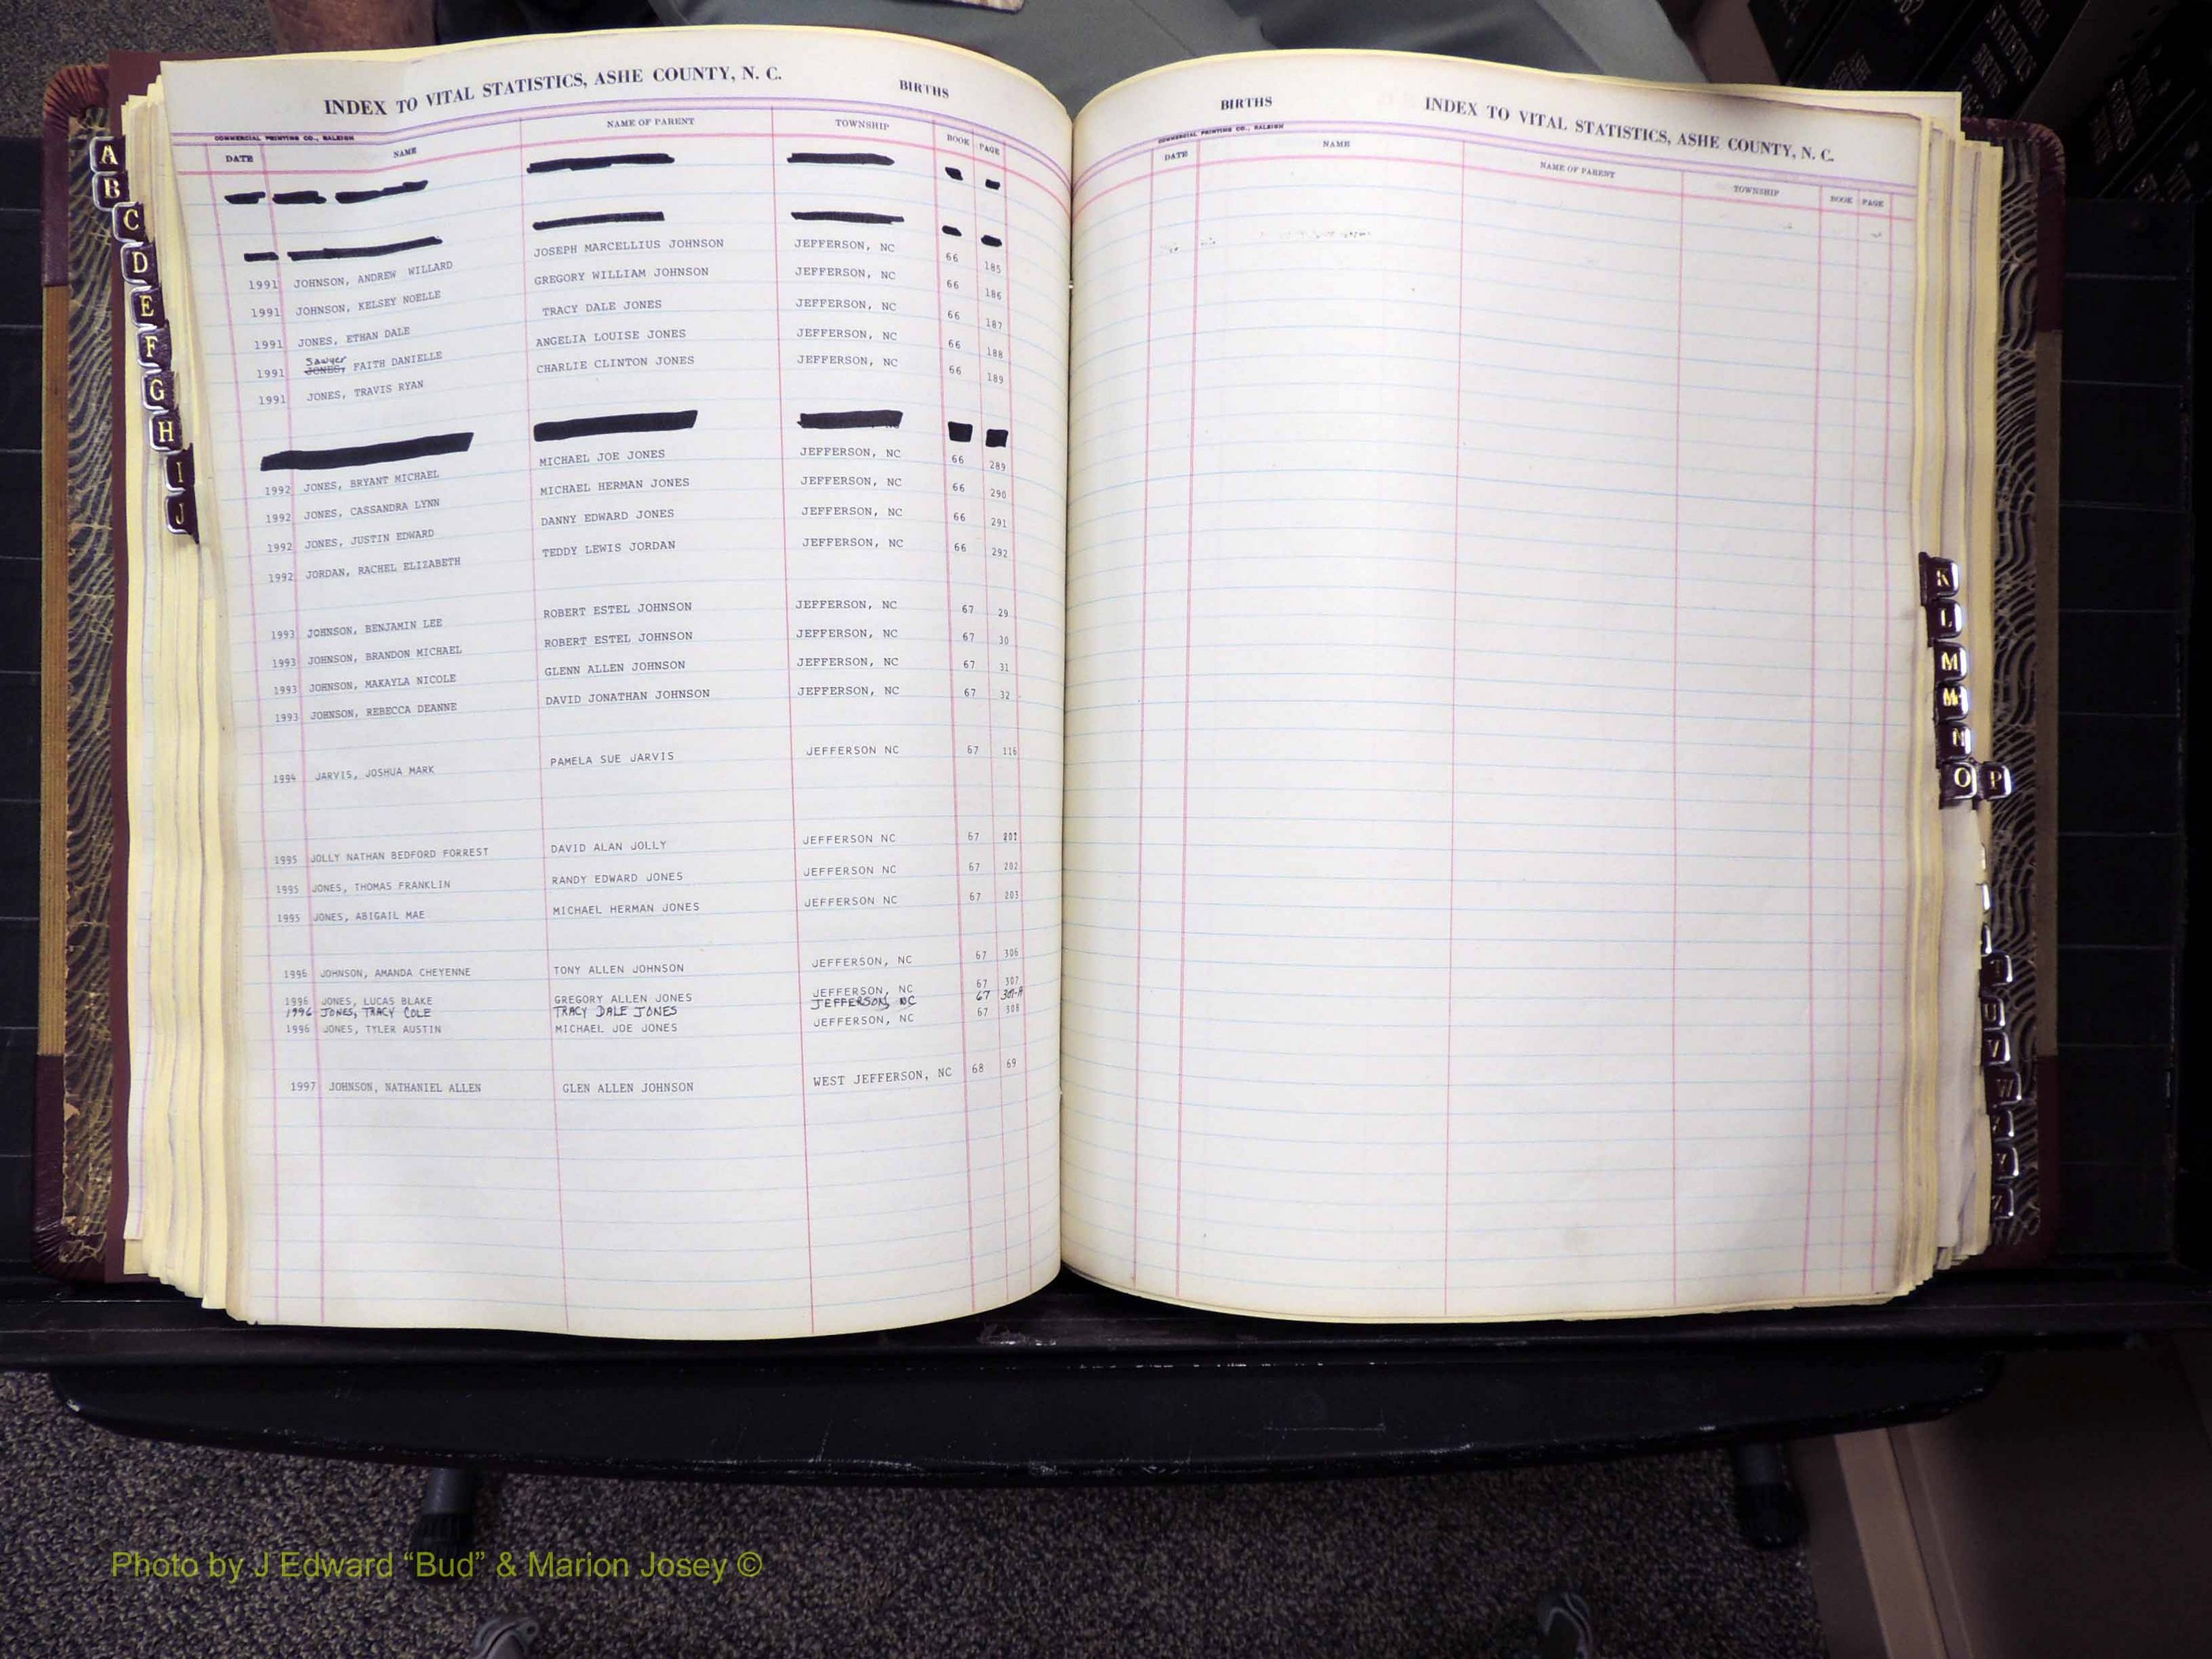 INDEX TO VITAL STATISTICS, ASHE COUNTY, N. C. BIRTHS
COMMERCIAL PRINTING CO., RALEIGH
DATE NAME NAME OF PARENT TOWNSHIP BOOK PAGE
1991 JOHNSON, ANDREW WILLARD JOSEPH MARCELLIUS JOHNSON JEFFERSON, NC 66 185
1991 JOHNSON, KELSEY NOELLE GREGORY WILLIAM JOHNSON JEFFERSON, NC 66 186
1991 JONES, ETHAN DALE TRACY DALE JONES JEFFERSON, NC 66 187
Sawyer
1991 JONES, FAITH DANIELLE ANGELIA LOUISE JONES JEFFERSON, NC 66 188
1991 JONES, TRAVIS RYAN CHARLIE CLINTON JONES JEFFERSON, NC 66 189
1992 JONES, BRYANT MICHAEL MICHAEL JOE JONES JEFFERSON, NC 66 289
1992 JONES, CASSANDRA LYNN MICHAEL HERMAN JONES JEFFERSON, NC 66 290
1992 JONES, JUSTIN EDWARD DANNY EDWARD JONES JEFFERSON, NC 66 291
1992 JORDAN, RACHEL ELIZABETH TEDDY LEWIS JORDAN JEFFERSON, NC 66 292
1993 JOHNSON, BENJAMIN LEE ROBERT ESTEL JOHNSON JEFFERSON, NC 67 29
1993 JOHNSON, BRANDON MICHAEL ROBERT ESTEL JOHNSON JEFFERSON, NC 67 30
1993 JOHNSON, MAKAYLA NICOLE GLENN ALLEN JOHNSON JEFFERSON, NC 67 31
1993 JOHNSON, REBECCA DEANNE DAVID JONATHAN JOHNSON JEFFERSON, NC 67 32
1994 JARVIS, JOSHUA MARK PAMELA SUE JARVIS JEFFERSON NC 67 116
1995 JOLLY NATHAN BEDFORD FORREST DAVID ALAN JOLLY JEFFERSON NC 67 201
1995 JONES, THOMAS FRANKLIN RANDY EDWARD JONES JEFFERSON NC 67 202
1995 JONES, ABIGAIL MAE MICHAEL HERMAN JONES JEFFERSON NC 67 203
1996 JOHNSON, AMANDA CHEYENNE TONY ALLEN JOHNSON JEFFERSON, NC 67 306
1996 JONES, LUCAS BLAKE GREGORY ALLEN JONES JEFFERSON, NC 67 307
1996 JONES, TRACY COLE TRACY DALE JONES JEFFERSON, NC 67 307-A
1996 JONES, TYLER AUSTIN MICHAEL JOE JONES JEFFERSON, NC 67 308
1997 JOHNSON, NATHANIEL ALLEN GLEN ALLEN JOHNSON WEST JEFFERSON, NC 68 69
A
B
C
D
E
F
G
H
I
J
BIRTHS INDEX TO VITAL STATISTICS, ASHE COUNTY, N. C.
COMMERCIAL PRINTING CO., RALEIGH
DATE NAME NAME OF PARENT TOWNSHIP BOOK PAGE
K
L
M
Mc
N
O P
U
V
W
Photo by J Edward “Bud” & Marion Josey ©